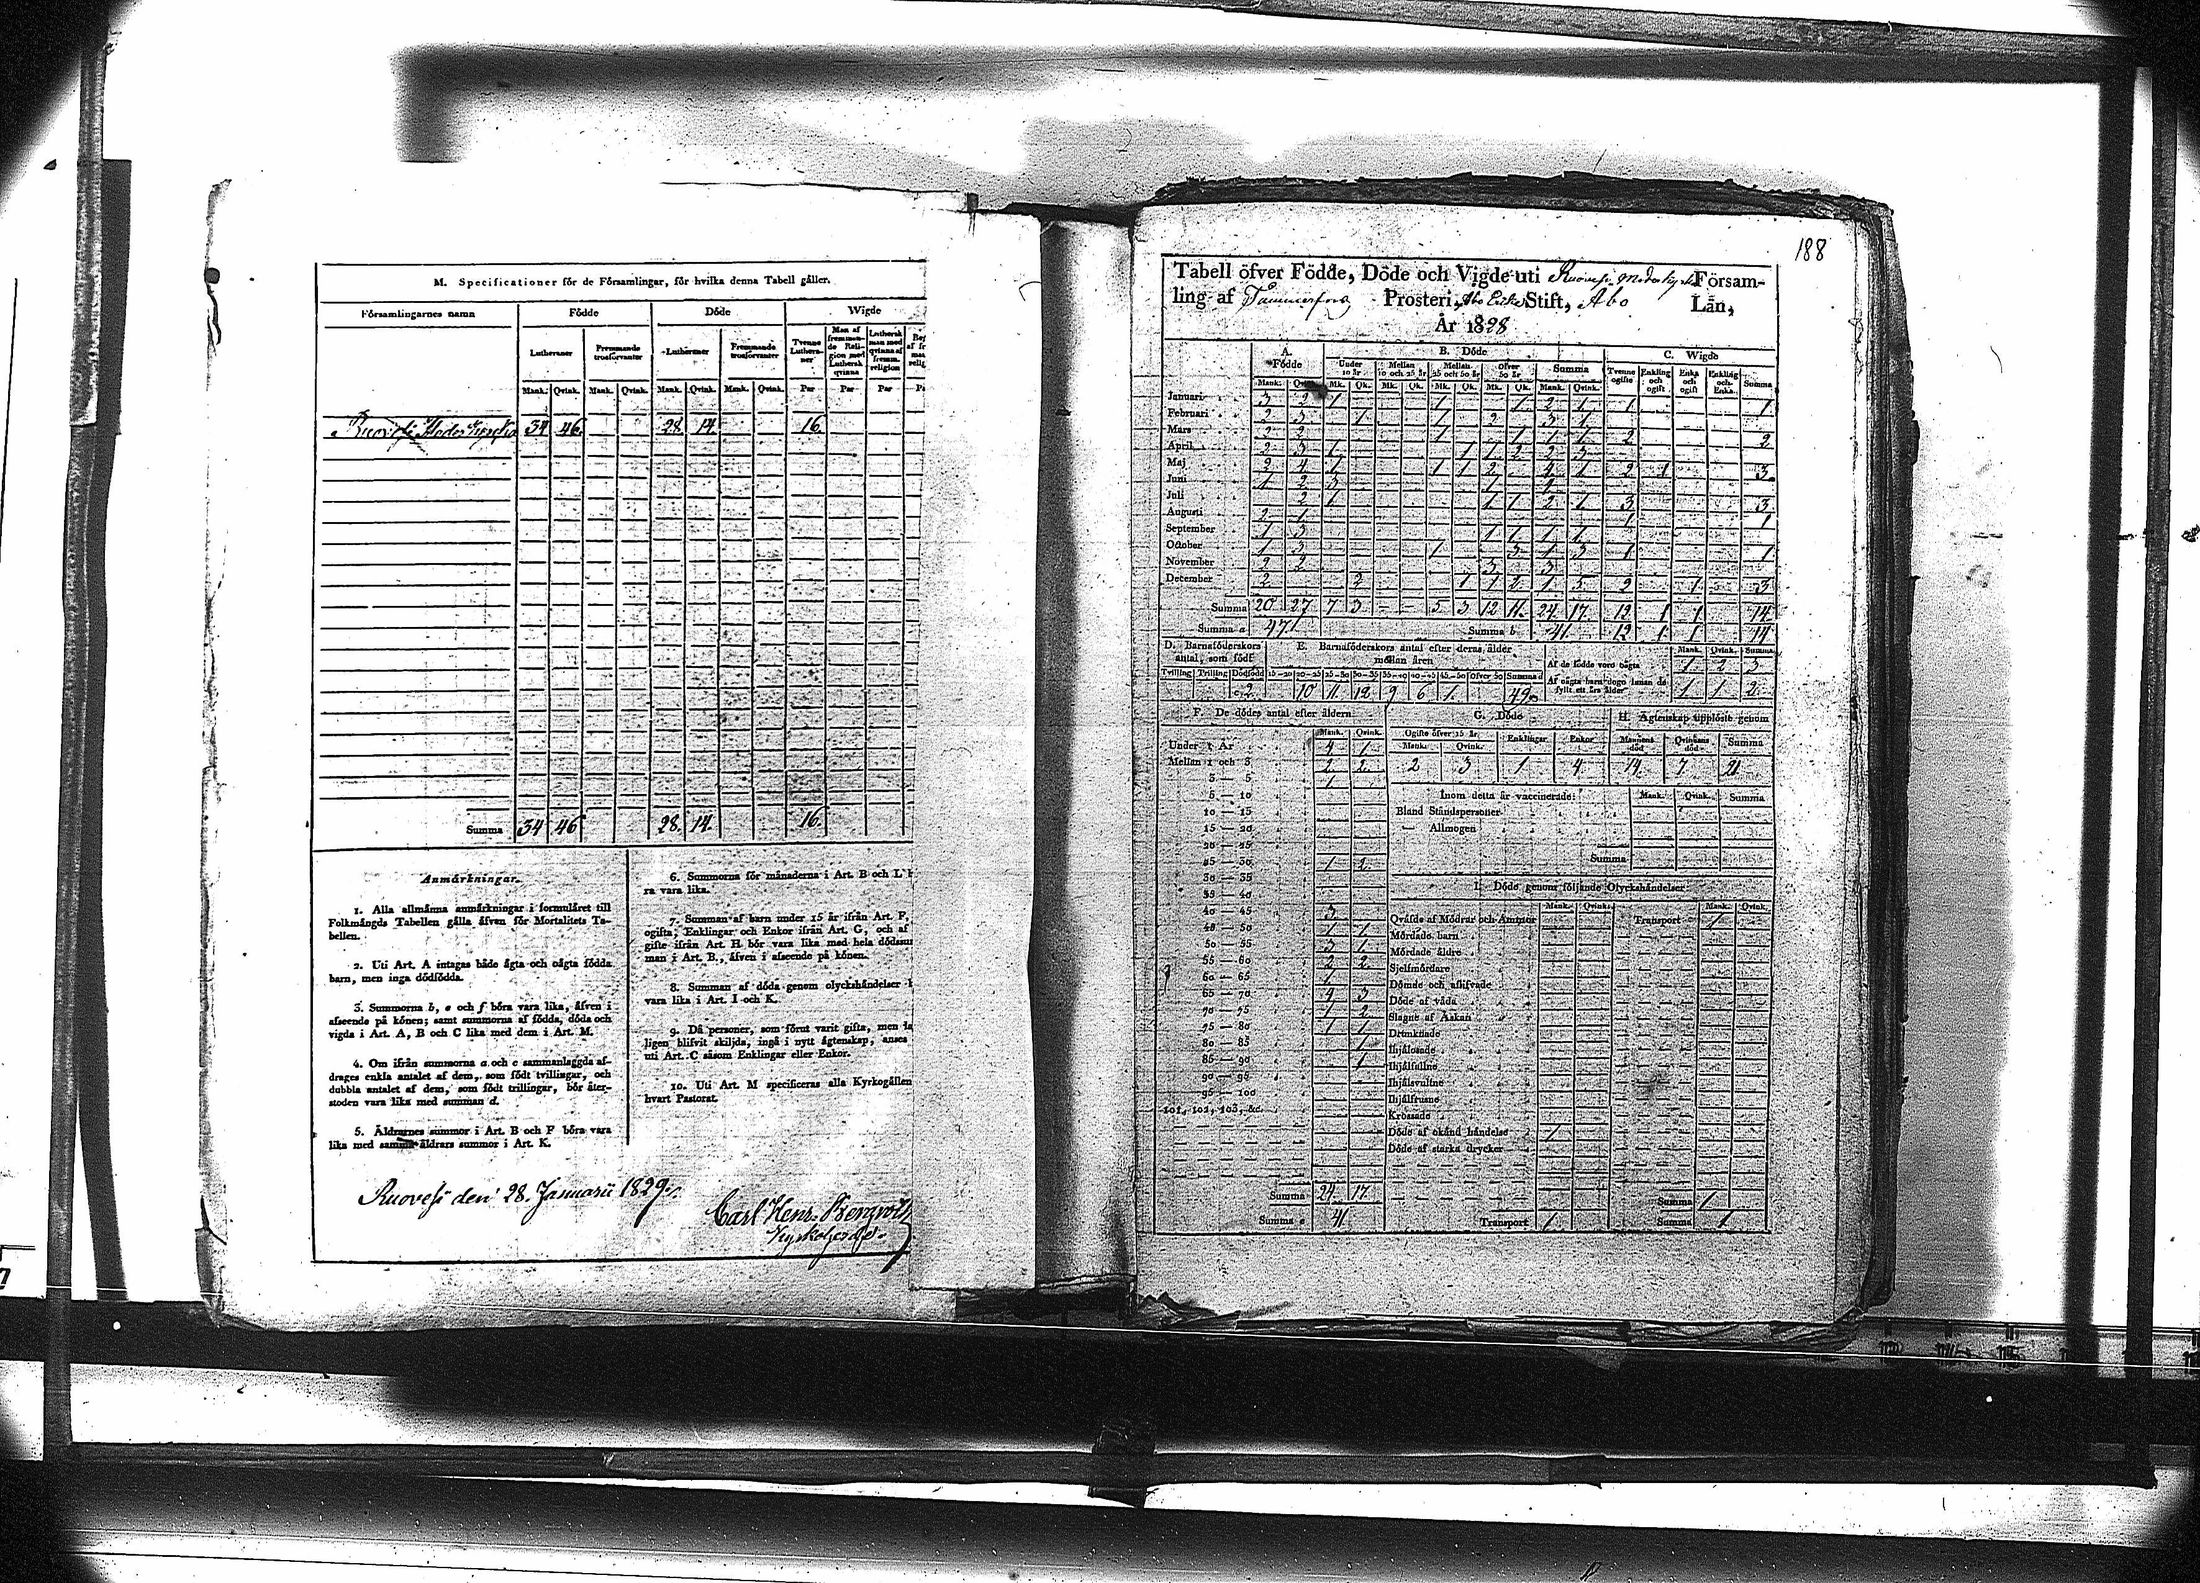 M. Specificationer för de Församlingar, för hvilka denna Tabell gäller.
Församlingarnes namn Födde Döde Wigde
Lutheraner Fremmande trosförvanter Lutheraner Fremmande trosförvanter Tvenne Lutheraner Man af fremmande Religion med Luthersk qvinna Luthersk man med qvinna af fremm. religion
Mank. Qvink. Mank. Qvink. Mank. Qvink. Mank. Qvink. Par Par Par
Ruovesi Moderkyrka 34 46 28 14 16
Summa 34 46 28. 14. 16
Anmärkningar.
1. Alla allmänna anmärkningar i formuläret till
Folkmängds Tabellen gälla äfven för Mortalitets Ta-
bellen.
2. Uti Art. A intagas både ägta och oägta födda
barn, men inga dödfödda.
3. Summorna b, e och f böra vara lika, äfven i
afseende på könen; samt summorna af födda, döda och
vigda i Art. A, B och C lika med dem i Art. M.
4. Om ifrån summorna a och c sammanlaggda af-
drages enkla antalet af dem, som födt tvillingar, och
dubbla antalet af dem, som födt trillingar, bör åter-
stoden vara lika med summan d.
5. Åldrarnes summor i Art. B och F böra vara
lika med samma åldrars summor i Art. K.
6. Summorna för månaderna i Art. B och L
ra vara lika.
7. Summan af barn under 15 år ifrån Art. F,
ogifta, Enklingar och Enkor ifrån Art. G, och af
gifte ifrån Art. H bör vara lika med hela dödssum
man i Art. B., äfven i afseende på könen.
8. Summan af döda genom olyckshändelser
vara lika i Art. I och K.
9. Då personer, som förut varit gifta, men la
ligen blifvit skiljda, ingå i nytt ägtenskap, anses
uti Art. C såsom Enklingar eller Enkor.
10. Uti Art. M specificeras alla Kyrkogällen
hvart Pastorat.
Ruovesi den 28. Januarii 1829.
Carl Henr. Bergroth
Kyrkoherde.
188
Tabell öfver Födde, Döde och Vigde uti Ruovesi Moderkyrko Församling
af Tammerfors Prosteri, Åbo Erke Stift, Åbo Län,
År 1828
A. Födde B. Döde C. Wigde
Under 10 år Mellan 10 och 25 år Mellan 25 och 50 år Öfver 50 år Summa Tvenne ogifte Enkling och ogift Enka och ogift Enkling och Enka Summa
Mank. Qvink. Mk. Qk. Mk. Qk. Mk. Qk. Mk. Qk. Mank. Qvink.
Januari 3 2 1 1 1 2 1 1 1
Februari 2 3 1 1 2 3 1
Mars 2 2 1 1 1 1 2 2
April 2 3 1 1 1 2 2 3
Maj 2 4 1 1 1 2 4 1 2 1 3
Juni 1 2 3 1 4
Juli 2 1 1 1 2 1 3 3
Augusti 2 1 1 1
September 1 3 1 1 1 1
October 1 3 1 3 1 3 1 1
November 2 2 3 3
December 2 2 1 1 2 1 5 2 1 3
Summa 20 27 7 3 – – 5 3 12 11 24 17 12 1 1 14
Summa a 47 Summa b 41 12 1 1 14
D. Barnaföderskors antal, som födt E. Barnaföderskors antal efter deras ålder mellan åren
Mank. Qvink. Summa
Af de födde voro oägta 1 2 3
Tvilling Trilling Dödfödd 16—20 20—25 25—30 30—35 35—40 40—45 45—50 Öfver 50 Summa d
c. 2 10 11 12 9 6 1 49
Af oägta barn dogo innan de fyllt ett års ålder 1 1 2
F. De dödes antal efter åldern G. Döde H. Ägtenskap upplöste genom
Mank. Qvink. Ogifte öfver 15 år Enklingar Enkor Mannens död Qvinnans död Summa
Mank. Qvink.
2 3 1 4 14 7 21
Under 1 År 4 1
Mellan 1 och 3 2 2
3 — 5 1
5 — 10
10 — 15
15 — 20
20 — 25
25 — 30 1 2
30 — 35
35 — 40
40 — 45 3
45 — 50 1 1
50 — 55 3 1
55 — 60 2 2
60 — 65 1
65 — 70 4 3
70 — 75 1 2
75 — 80 1 1
80 — 85 1
85 — 90 1
90 — 95
95 — 100
101, 102, 103, &c.
Summa 24 17
Summa e 41
Inom detta år vaccinerade: Mank. Qvink. Summa
Bland Ståndspersoner
— Allmogen
Summa
I. Döde genom följande Olyckshändelser
Mank. Qvink. Mank. Qvink.
Qväfde af Mödrar och Ammor Transport 1
Mördade barn
Mördade äldre
Sjelfmördare
Dömde och aflifvade
Döde af våda
Slagne af Åskan
Drunknade
Ihjälosade
Ihjälfallne
Ihjälsvultne
Ihjälfrusne
Krossade
Döde af okänd händelse 1
Döde af starka drycker
Summa 1
Transport 1 Summa 1